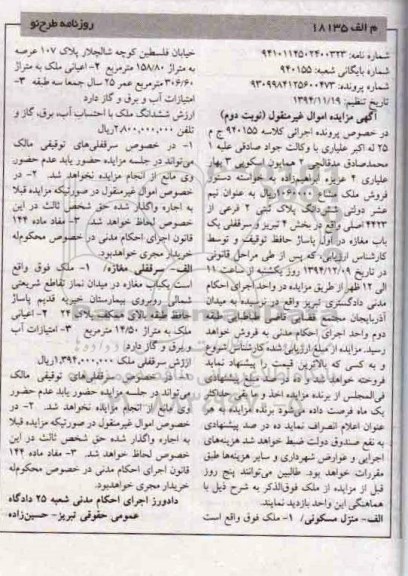 روزنامه طرح‌نو
م الف ۱۸۱۳۵
شماره نامه: ۹۴۱۰۱۱۴۵۰۲۴۰۰۳۲۳
شماره بایگانی شعبه: ۹۴۰۱۵۵
شماره پرونده: ۹۳۰۹۹۸۴۱۲۵۶۰۰۴۷۳
تاریخ تنظیم: ۱۳۹۴/۱۱/۱۹
آگهی مزایده اموال غیرمنقول (نوبت دوم)
در خصوص پرونده اجرائی کلاسه ۹۴۰۱۵۵ ج م
۲۵ له اکبر علیاری با وکالت جواد صادقی علیه ۱
محمدصادق مدقالچی ۲ همایون اسکویی ۳ بهار
علیاری ۴ عزیزه زاهدزاده به خواسته دستور
فروش ملک به عنوان نیم
عشر دولتی ششدانگ پلاک ثبتی ۲ فرعی از
۴۴۲۳ اصلی واقع در بخش ۳ تبریز و سرقفلی یک
باب مغازه در اول پاساژ حافظ توقیف و توسط
کارشناس ارزیابی، که پس از طی مراحل قانونی
در تاریخ ۱۳۹۴/۱۲/۰۹ روز یکشنبه از ساعت ۱۱
الی ۱۲ ظهر از طریق مزایده در واحد اجرای احکام
مدنی دادگستری تبریز واقع در نرسیده به میدان
آذربایجان مجتمع قضایی شهید حافظی طبقه
دوم واحد اجرای احکام مدنی به فروش خواهد
رسید. مزایده از مبلغ ارزیابی شده کارشناس شروع
و به کسی که بالاترین قیمت را پیشنهاد نماید
فروخته خواهد شد. ده درصد مبلغ پیشنهادی
فی‌المجلس از برنده مزایده اخذ و مابقی حداکثر
یک ماه فرصت داده می‌شود برنده مزایده به هر
عنوان اعلام انصراف نماید ده در صد پیشنهادی
به نفع صندوق دولت ضبط خواهد شد هزینه‌های
اجرایی و عوارض شهرداری و سایر هزینه‌ها طبق
مقررات خواهد بود. طالبین می‌توانند پنج روز
قبل از مزایده از ملک فوق‌الذکر به شرح ذیل با
هماهنگی این واحد بازدید نمایند.
الف- منزل مسکونی/ ۱- ملک فوق واقع است
خیابان فلسطین کوچه شالچلار پلاک ۱۰۷ عرصه
به متراژ ۱۵۸/۸۰ مترمربع ۲- اعیانی ملک به متراژ
۳۰۶/۶۰ مترمربع عمر ۲۵ سال جمعا سه طبقه ۳-
امتیازات آب و برق و گاز دارد
ارزش ششدانگ ملک با احتساب آب، برق، گاز و
تلفن ۲/۸۰۰/۰۰۰/۰۰۰ریال
۱- در خصوص سرقفلی‌های توقیفی مالک
می‌تواند در جلسه مزایده حضور یابد عدم حضور
وی مانع از انجام مزایده نخواهد شد. ۲- در
خصوص اموال غیرمنقول در صورتیکه مزایده قبلا
به اجاره واگذار شده حق شخص ثالث در این
خصوص لحاظ خواهد شد. ۳- مفاد ماده ۱۴۴
قانون اجرای احکام مدنی در خصوص محکوم‌له
خریدار مجری خواهدبود.
الف- سرقفلی مغازه/ ۱- ملک فوق واقع
است یکباب مغازه در میدان نماز تقاطع شریعتی
شمالی روبروی بیمارستان خیریه قدیم پاساژ
حافظ طبقه ۲۴ ۲- اعیانی
ملک به متراژ ۱۴/۵۰ مترمربع ۳- امتیازات آب
و برق و گاز دارد
ارزش سرقفلی ملک ۱/۳۹۴/۰۰۰/۰۰۰ریال
۱- در خصوص سرقفلی‌های توقیفی مالک
می‌تواند در جلسه مزایده حضور یابد عدم حضور
وی مانع از انجام مزایده نخواهد شد. ۲- در
خصوص اموال غیرمنقول در صورتیکه مزایده قبلا
به اجاره واگذار شده حق شخص ثالث در این
خصوص لحاظ خواهد شد. ۳- مفاد ماده ۱۴۴
قانون اجرای احکام مدنی در خصوص محکوم‌له
خریدار مجری خواهدبود.
دادورز اجرای احکام مدنی شعبه ۲۵ دادگاه
عمومی حقوقی تبریز- حسین‌زاده